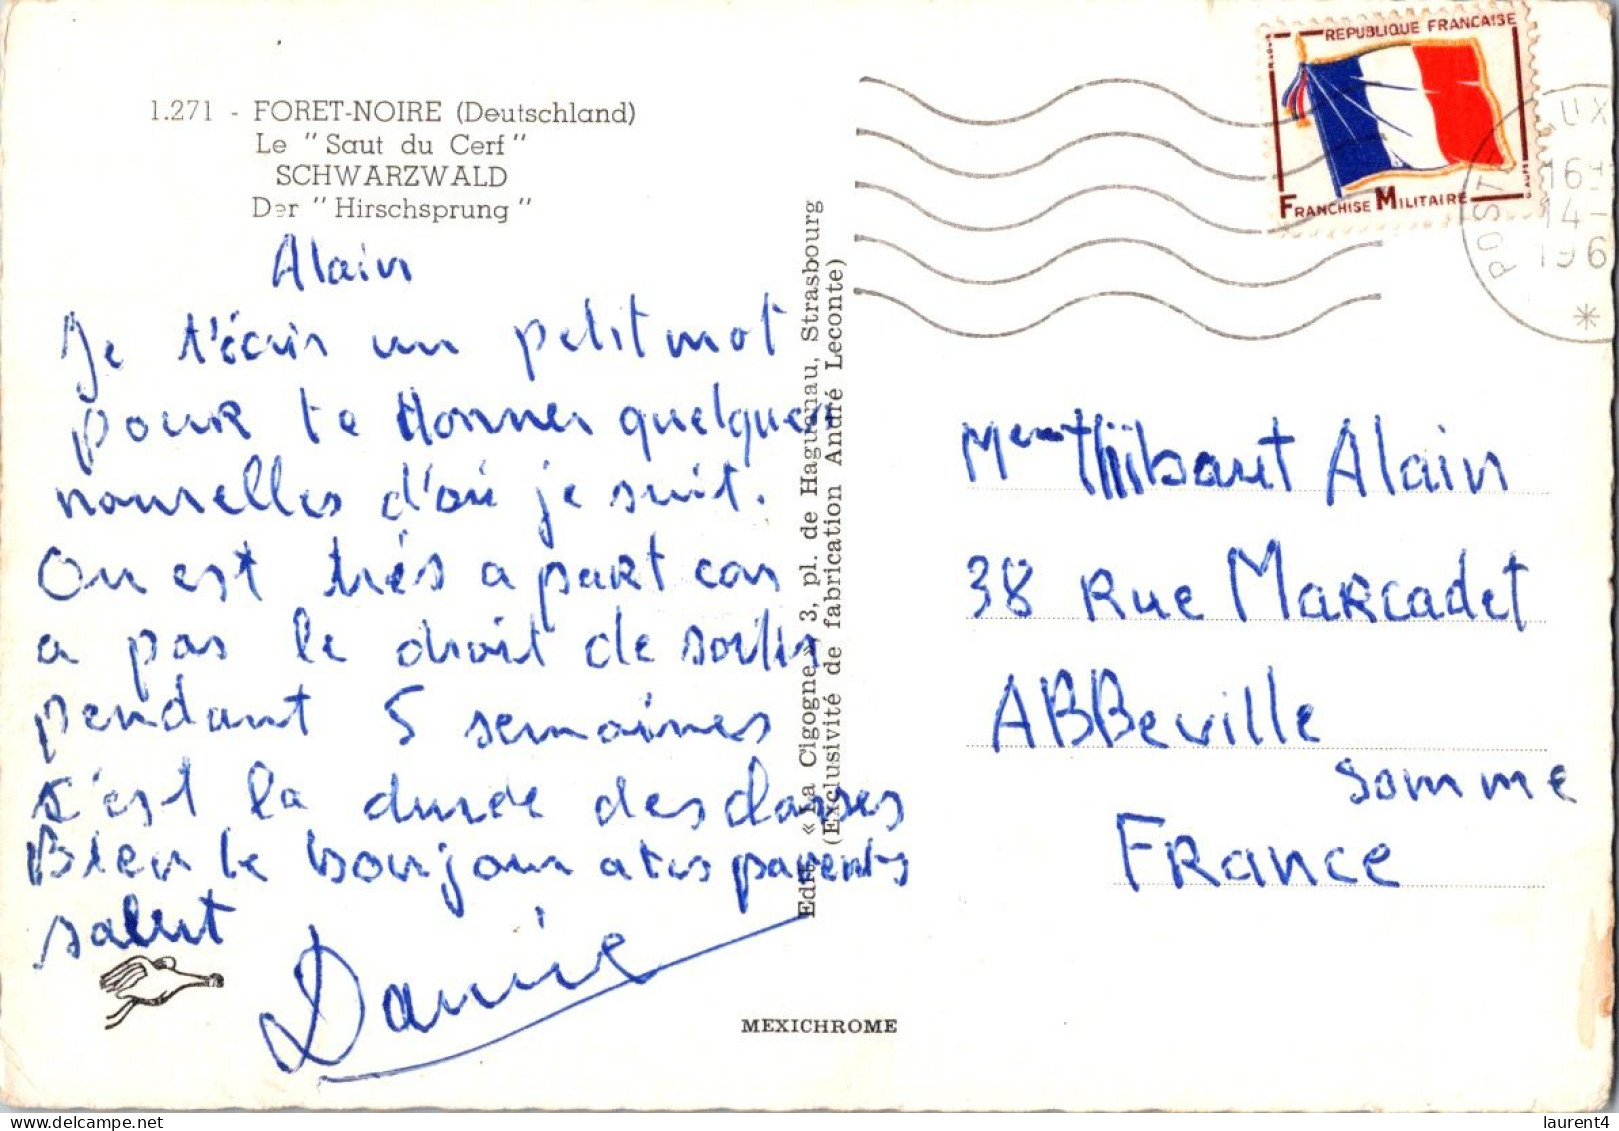 1.271 - FORET-NOIRE (Deutschland)
Le "Saut du Cerf"
SCHWARZWALD
Der "Hirschsprung"
Alain
Je t'écris un petit mot
pour te donner quelques
nouvelles d'où je suit.
On est très a part car
a pas le droit de sortir
pendant 5 semaines
c'est la durée des classes
Bien le bonjour a tes parents
salut
Daniel
Edit. « La Cigogne » 3, pl. de Haguenau, Strasbourg
(Exclusivité de fabrication André Leconte)
MEXICHROME
REPUBLIQUE FRANÇAISE
FRANCHISE MILITAIRE
POSTE UX
16
14 -
196
*
Thibaut Alain
38 Rue MARCadet
ABBeville
Somme
FRANCE
laurent4